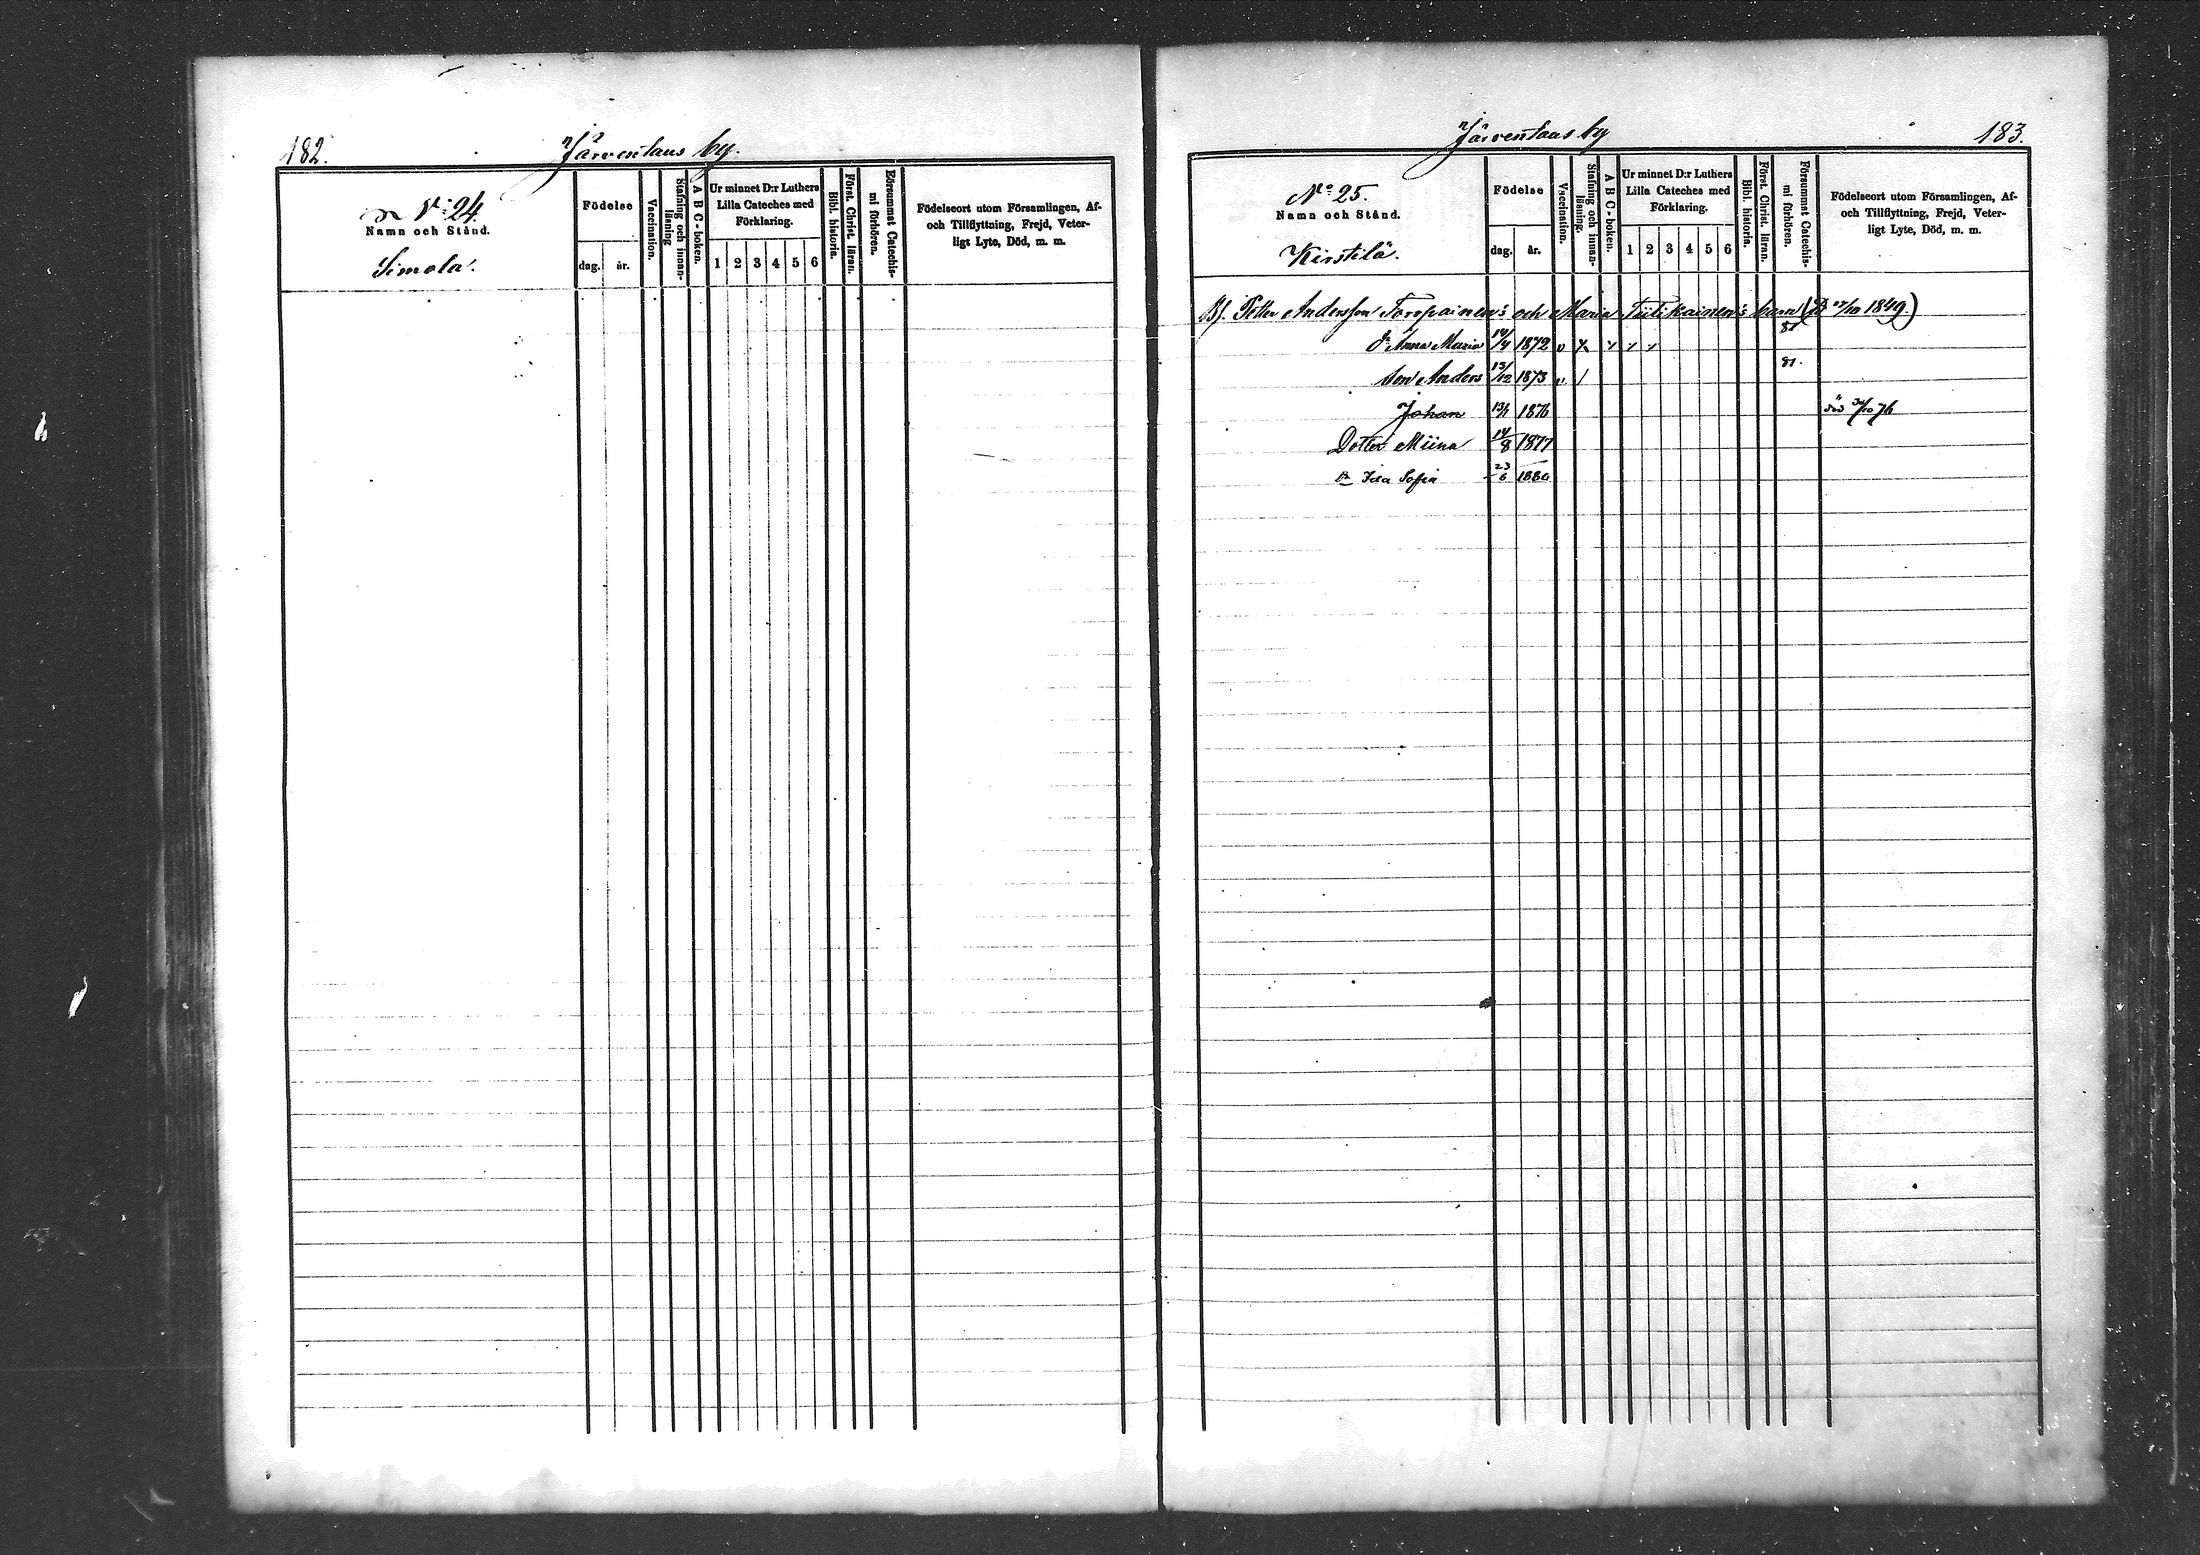 182.
Järventaus by.
N:o 24.
Namn och Stånd.
Simola.
Födelse
dag.
år.
Vaccination.
Stafning och innan-
läsning
A B C-boken.
Ur minnet D:r Luthers
Lilla Cateches med
Förklaring.
1 2 3 4 5 6
Bibl. historia.
Först. Christ. läran.
Försummat Catechis-
mi förhören.
Födelseort utom Församlingen, Af-
och Tillflyttning, Frejd, Veter-
ligt Lyte, Död, m. m.
Järventaus by
183.
No 25.
Namn och Stånd.
Kirstilä.
Födelse
dag.
år.
Vaccination.
Stafning och innan-
läsning.
A B C-boken.
Ur minnet D:r Luthers
Lilla Cateches med
Förklaring.
1 2 3 4 5 6
Bibl. historia.
Först. Christ. läran.
Försummat Catechis-
mi förhören.
Födelseort utom Församlingen, Af-
och Tillflyttning, Frejd, Veter-
ligt Lyte, Död, m. m.
Petter Andersson Torvpainen's och Maria Tiilikainen's barn 1849.)
Dr Anna Maria 14/4 1872 81
Son Anders 13/12 1873 81.
Johan 13/1 1876 död 30/10 76
Dotter Miina 14/8 1877
Dr Ida Sofia 23/6 1880